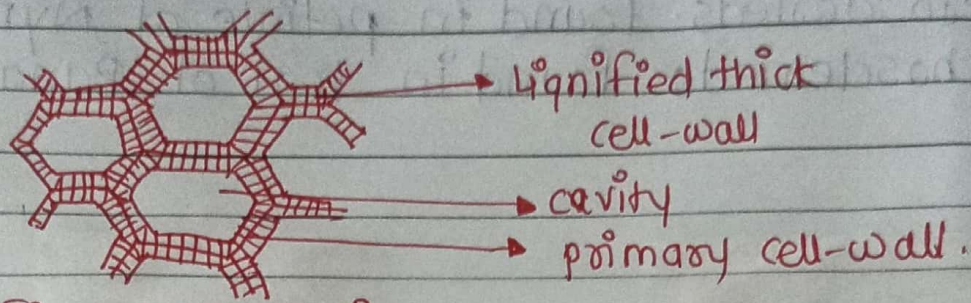 Lignified/thick
cell-wall
cavity
primary cell-wall.